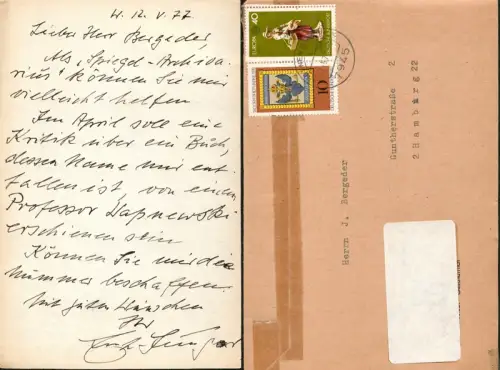 W. 12. V. 77
Lieber Herr Bergeder,
Als „Spiegel-Archiva-
rius" können Sie mir
vielleicht helfen.
Im April soll eine
Kritik über ein Buch,
dessen Name mir ent-
fallen ist von einem
Professor Wapnewski
erschienen sein
Können Sie mir die
Nummer beschaffen.
Mit guten Wünschen
Ihr
Ernst Jünger
40
EUROPA
10
7945
Herrn J. Bergeder
Guntherstraße 2
2 Hamburg 22